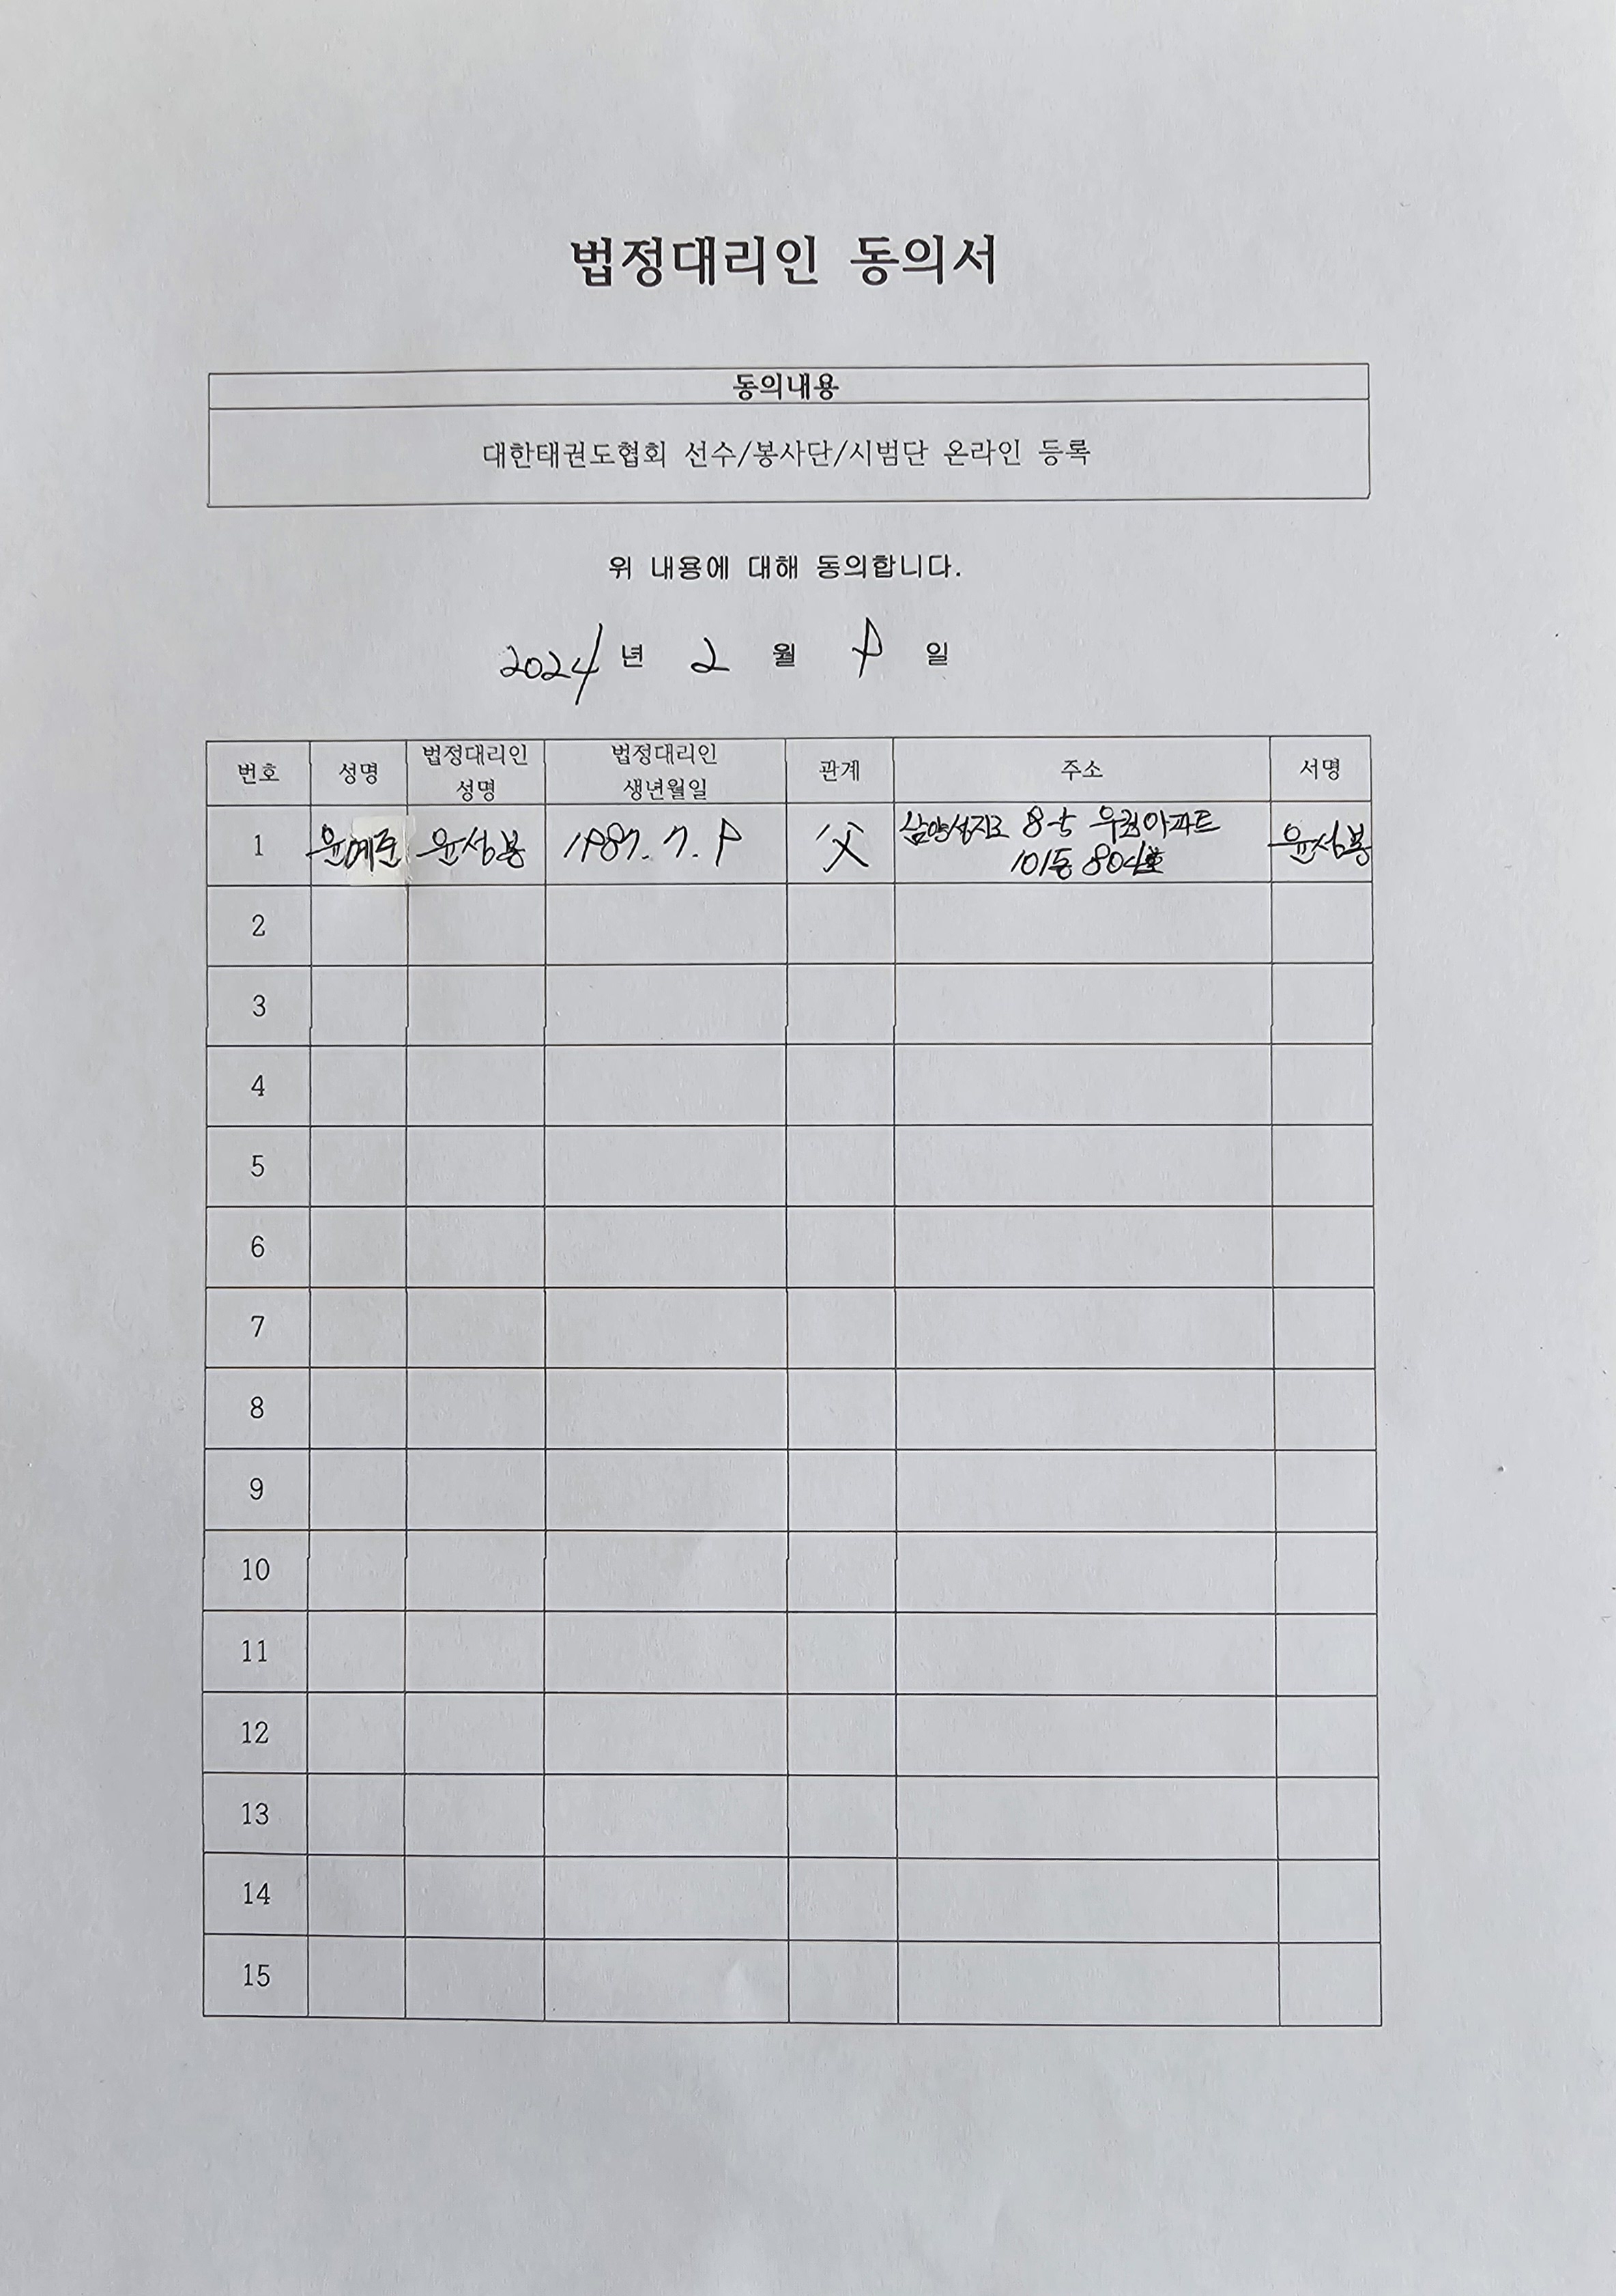 법정대리인 동의서
동의내용
대한태권도협회 선수/봉사단/시범단 온라인 등록
위 내용에 대해 동의합니다.
2024년 2 월 9 일
번호 성명 법정대리인 성명 법정대리인 생년월일 관계 주소 서명
1 윤예준 윤성봉 1987. 7. 9 父 삼양성지로 8-5 우권아파트 윤성봉
101동 804호
2
3
4
5
6
7
8
9
10
11
12
13
14
15